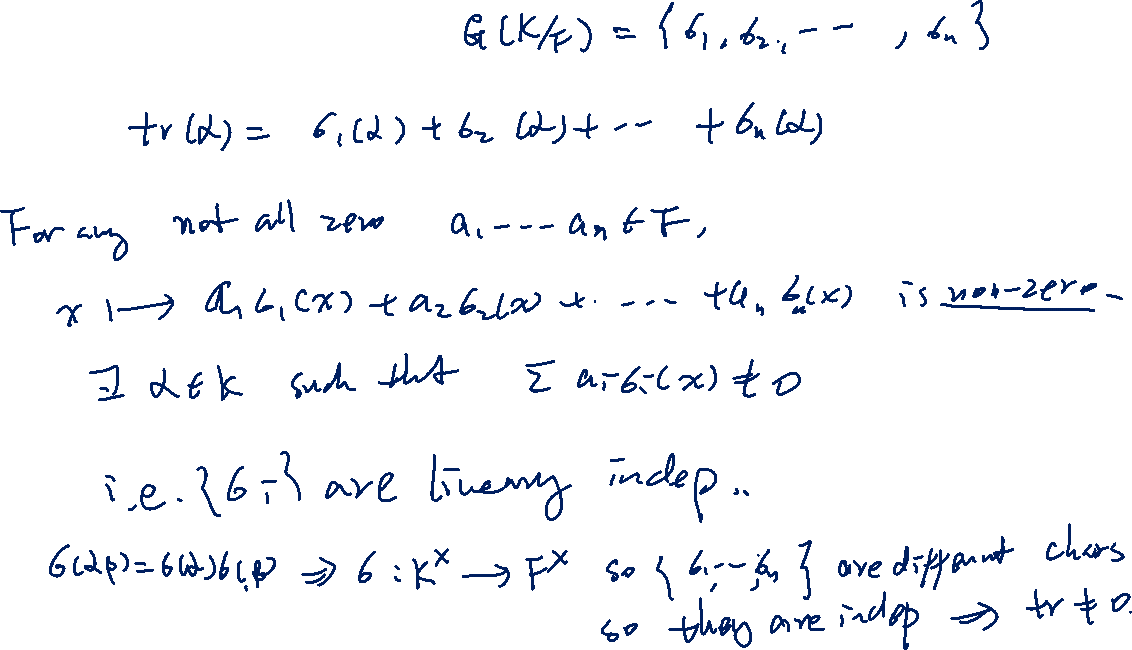 G(K/F) = {σ₁, σ₂, -- , σₙ}
tr(α) = σ₁(α) + σ₂(α) + -- + σₙ(α)
For any not all zero a₁ --- aₙ ∈ F,
x ↦ a₁σ₁(x) + a₂σ₂(x) + ---- + aₙσₙ(x) is non-zero.
∃ α ∈ K such that Σ aᵢσᵢ(x) ≠ 0
i.e. {σᵢ} are linearly indep..
σ(αβ)=σ(α)σ(β) ⇒ σ : K^× → F^× so {σ₁,--,σₙ} are different chars
so they are indep ⇒ tr ≠ 0.